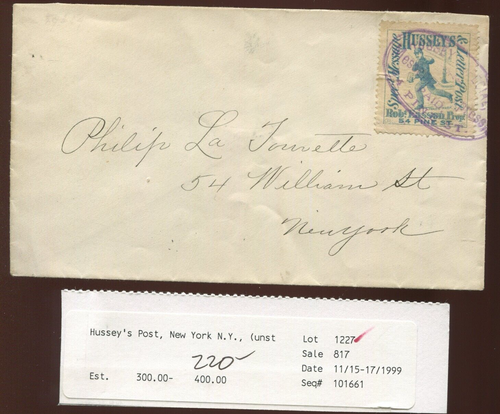 HUSSEY'S
& Letter Post
Special Message
Robt Easson Propr
54 PINE ST
Philip La Tourette
54 William St
New York
Hussey's Post, New York N.Y., (unst
220-
Est. 300.00- 400.00
Lot 1227
Sale 817
Date 11/15-17/1999
Seq# 101661